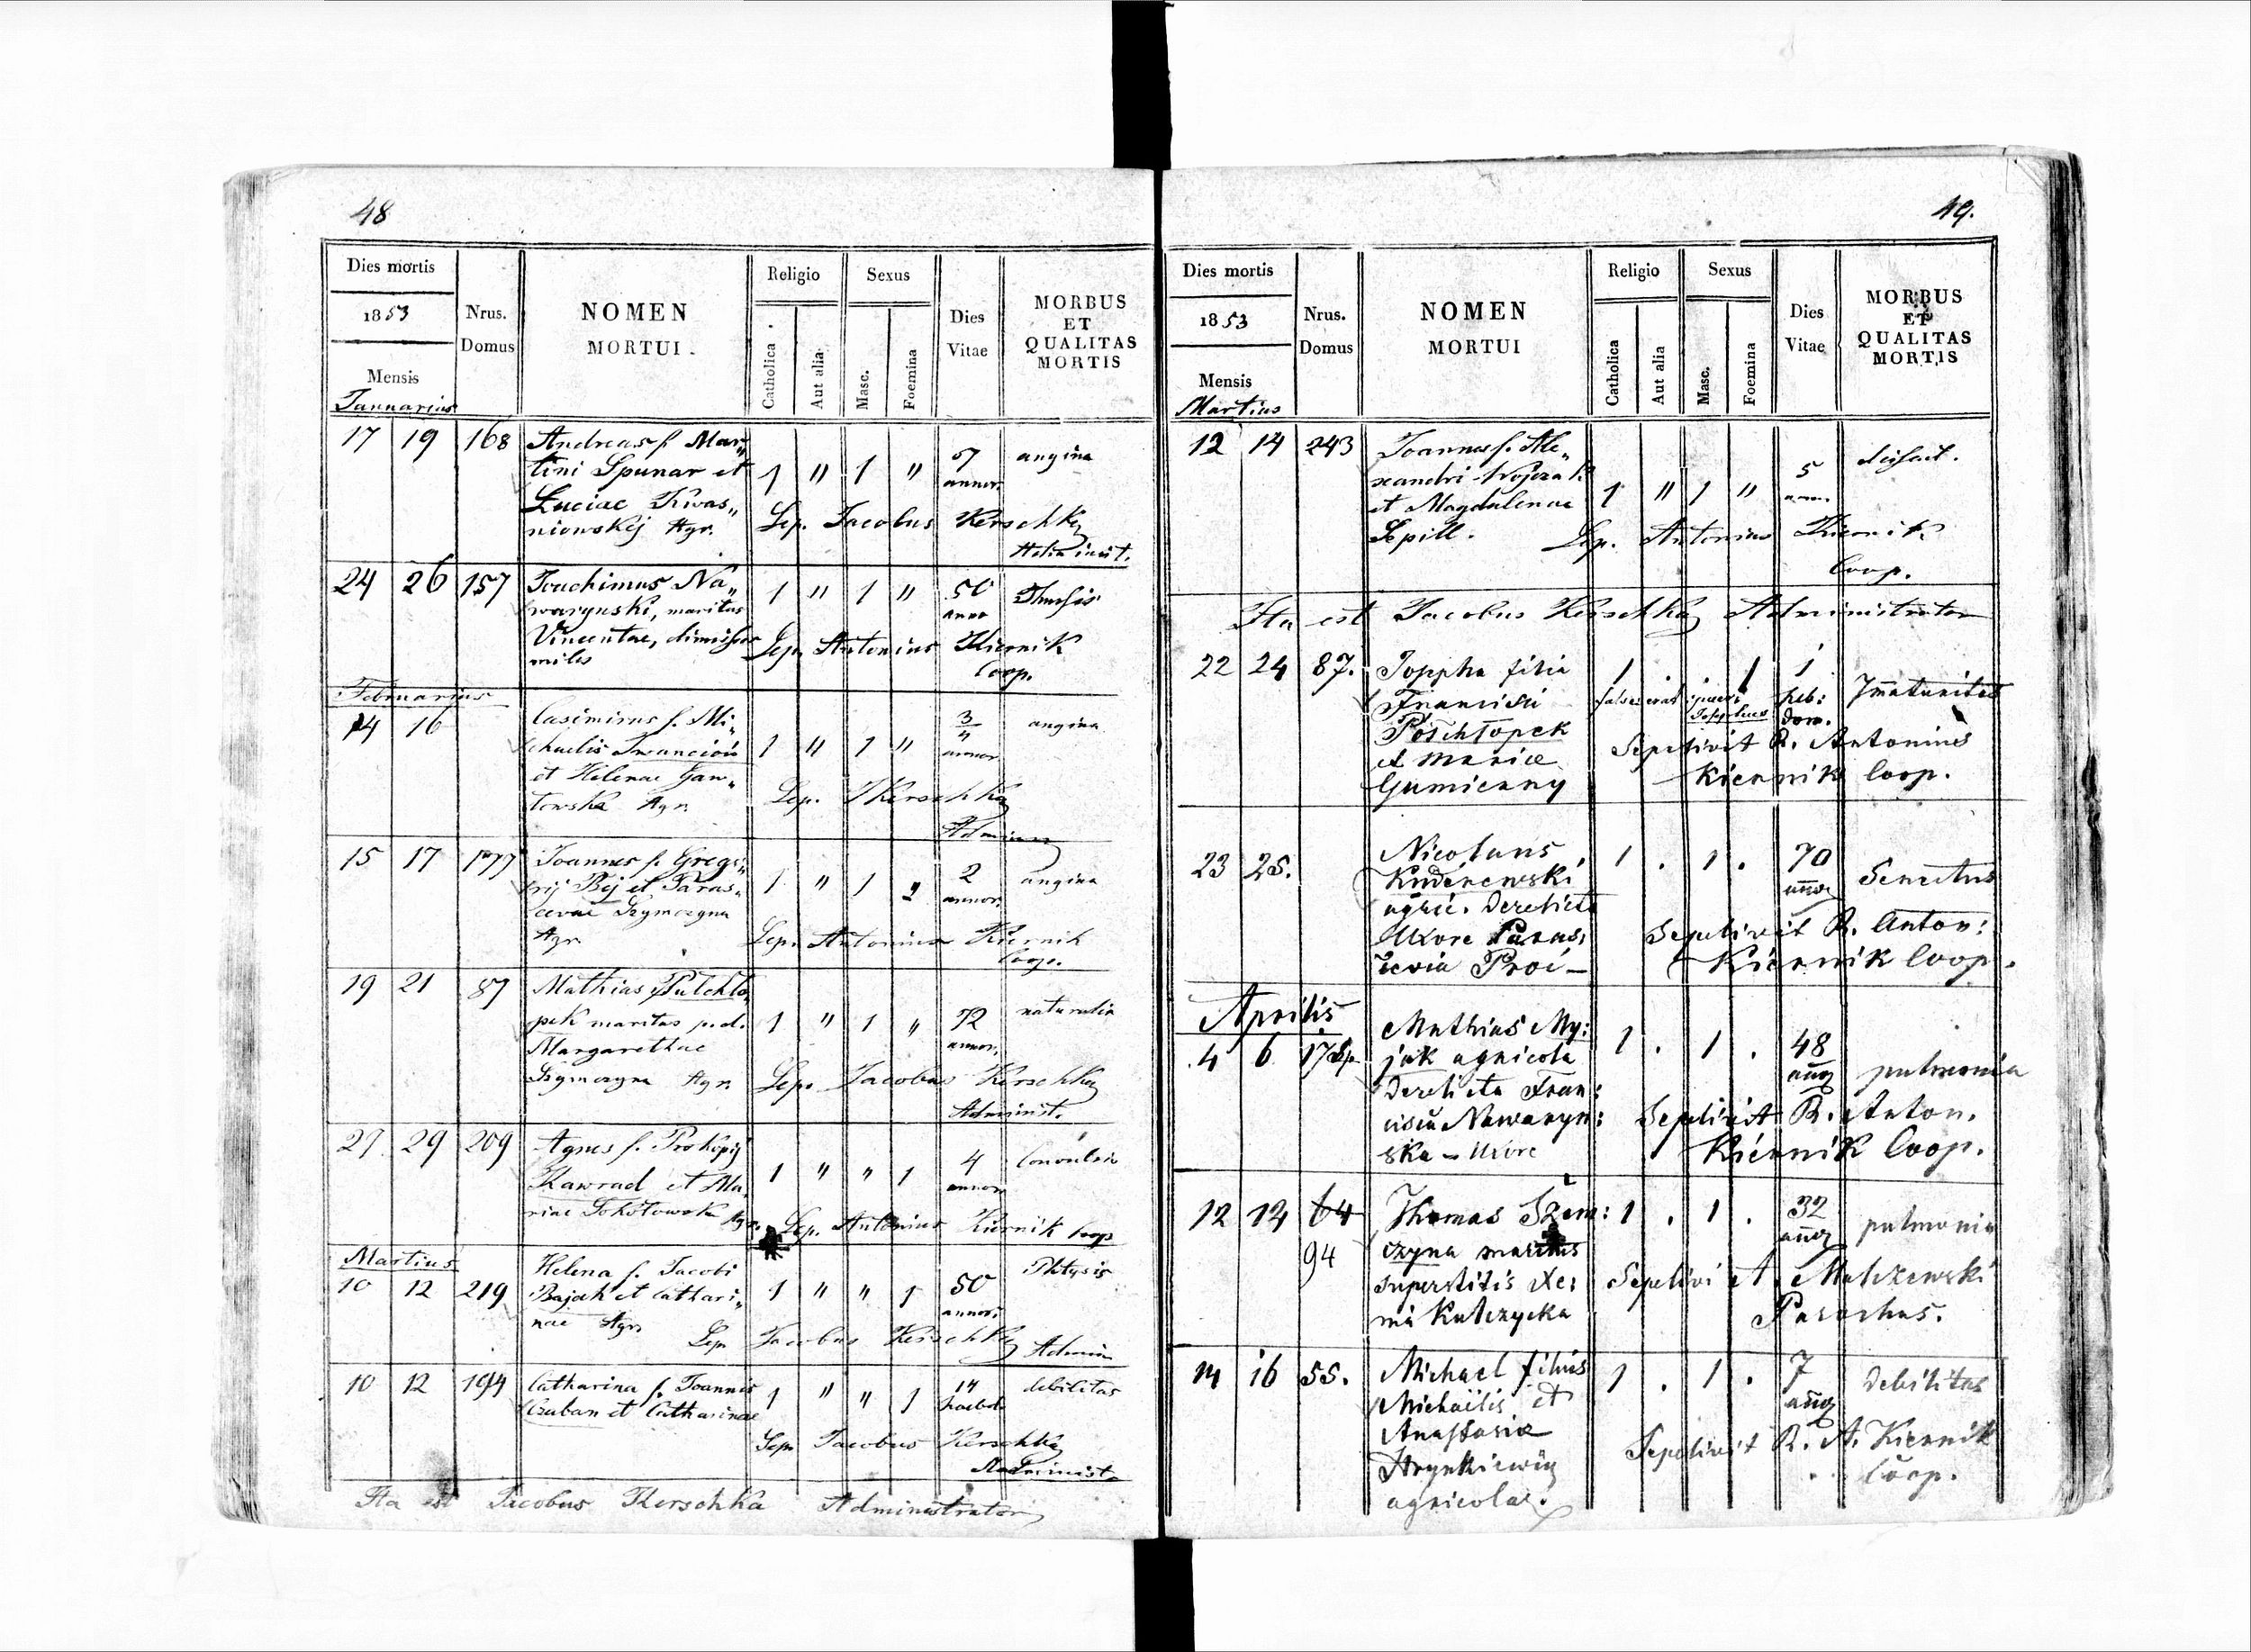 48
Dies mortis
1853
Mensis
Januarius
Nrus.
Domus
NOMEN
MORTUI.
Religio
Catholica.
Aut alia
Sexus
Masc.
Foemina
Dies
Vitae
MORBUS
ET
QUALITAS
MORTIS
17 19 168 Andreas f. Mar„
tini Spunar et
Luciae Kwas„
niowskij Agr.
1 " 1 " 57 annor. angina
Sep. Jacobus Kerschka
24 26 157 Joachimus Na„
warynski, maritus
Vincentae, dimissus
miles
1 " 1 " 50
Sep. Antonius Kiernik
Coop.
Februarius
14 16 Casimirus f. Mi„
chaelis Iwanciów
et Helenae Gaw„
lowska Agr.
1 " 1 " 3 annor angina
Sep. JKerschka
15 17 177 Joannes f. Grego„
rij Bij et Paras„
cevae Szymczyna
Agr.
1 " 1 " 2 annor. angina
Sep. Antonius Kiernik
Coop.
19 21 87 Mathias Pulchlo„
pek maritus p.d.
Margarethae
Szymczyna Agr.
1 " 1 " 72 annor. naturalis
Sep. Jacobus Kerschka
Administ.
27 29 209 Agnes f. Prokopij
Kawrad et Ma„
riae Sokołowska Agr.
1 " " 1 4 annor
Sep. Antonius Kiernik Coop
Martius
10 12 219 Helena f. Jacobi
Bajak et Cathari„
nae Agr.
1 " " 1 50 annor. Phtysis
Sep. Jacobus Kerschka
Admin
10 12 194 Catharina f. Joannis
Czuban et Catharinae
1 " " 1 14 debilitas
Sep. Jacobus Kerschka
Administ.
Ita est Jacobus Kerschka Administrator
49.
Dies mortis
1853
Mensis
Martius
Nrus.
Domus
NOMEN
MORTUI
Religio
Catholica
Aut alia
Sexus
Masc.
Foemina
Dies
Vitae
MORBUS
ET
QUALITAS
MORTIS
12 14 243 Joannes f. Ale„
xandri
et Magdalenae
Sepill.
1 " 1 " 5
Sep. Antonius Kiernik
Coop.
Ita est Jacobus Kerschka Administrator
22 24 87. Zoppha filia
Francisci
Poschłopek
et Mariae
Gumienny
1 . 1 1 heb:
dom. Immaturitas
Sepelivit R. Antonius
Kiernik Coop.
23 25. Nicolaus
agric. derelicta
Uxore Paras:
1 . 1 . 70 Senectus
Sepelivit R. Anton:
Kiernik Coop.
Aprilis
4 6 Mathias My:
jak agricola
derelicta Fran:
cisca Nawaryn:
ska - Uxore
1 . 1 . 48 pulmonia
Sepelivit R. Anton.
Kiernik Coop.
12 14 64
94
Thomas Szem:
czyna maritus
superstitis Xe:
nia Kulczycka
1 . 1 . 32 pulmonia
Sepelivi A. Malczewski
Parochus.
14 16 55. Michael filius
Michaëlis et
Anastasiae
Hrynkiewicz
agricolae.
1 . 1 . 7 debilitas
Sepelivit R. A. Kiernik
Coop.